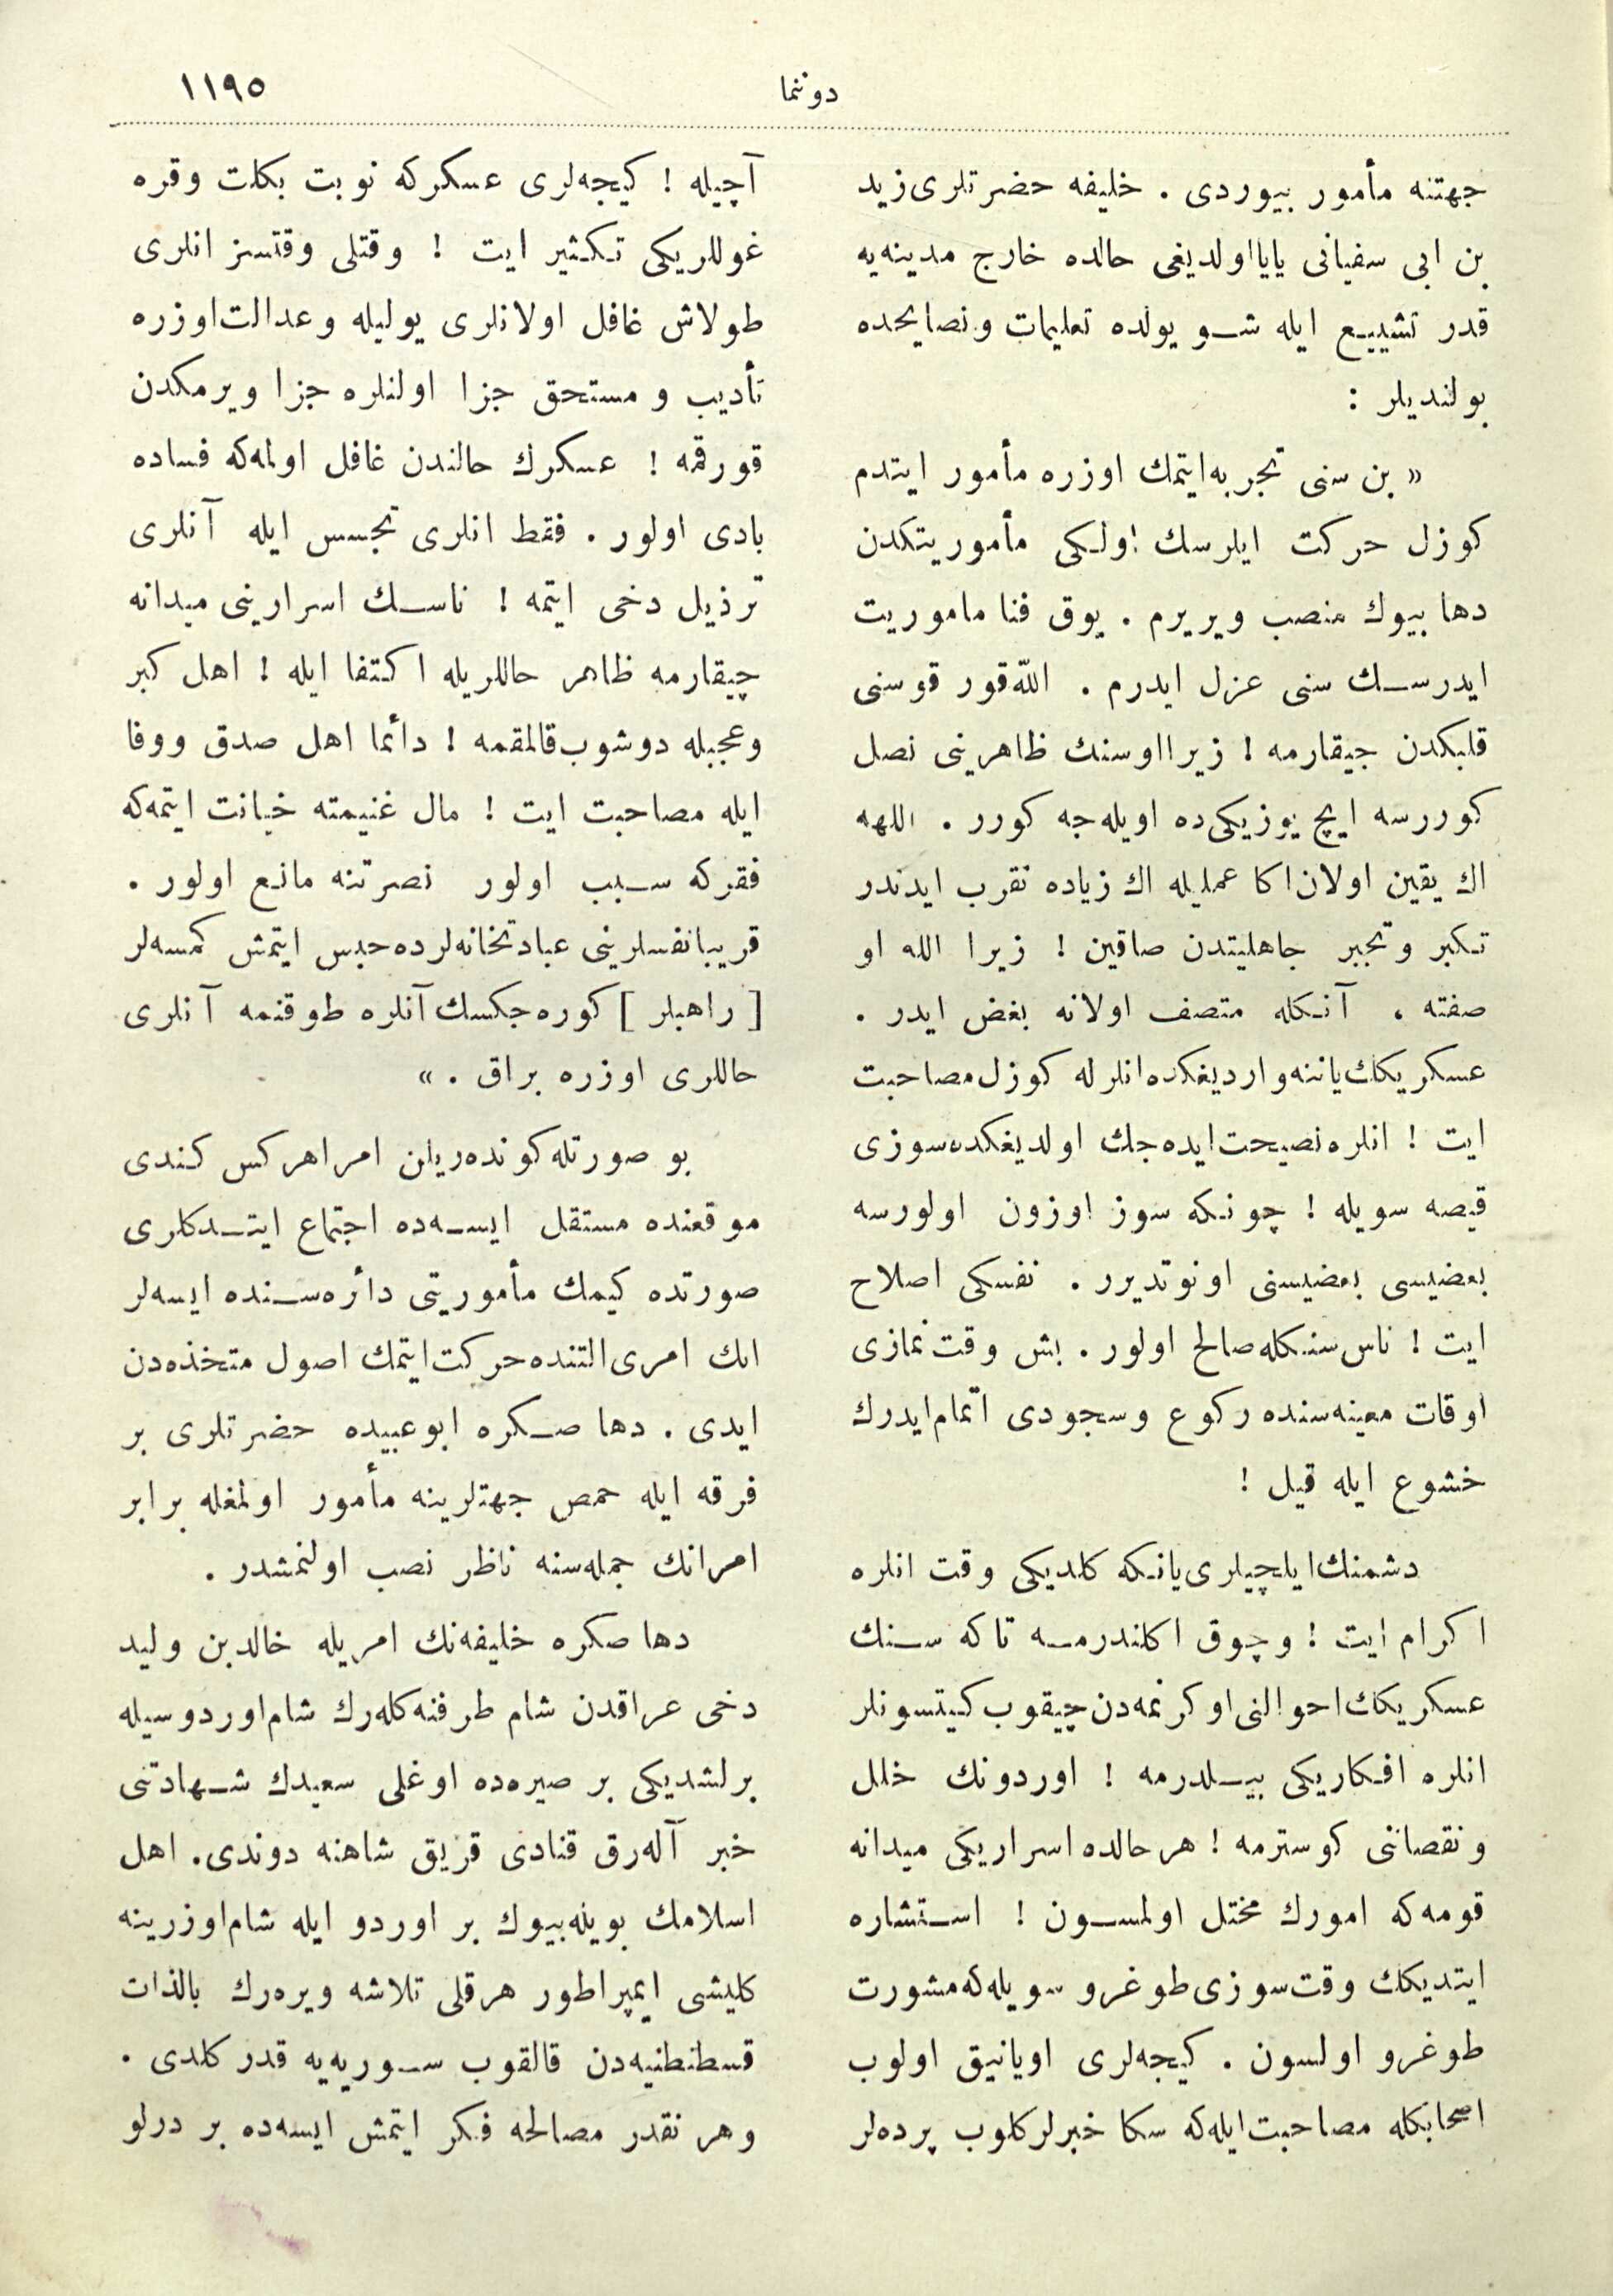 دوننما
١١٩٥
جهتنه مأمور بيوردى . خليفه حضرتلرى زيد
بن ابى سفيانى يايا اولديغى حالده خارج مدينه‌يه
قدر تشييع ايله شو يولده تعليمات و نصايحده
بولنديلر :
« بن سنى تجربه ايتمك اوزره مأمور ايتدم
كوزل حركت ايلرسك اولكى مأموريتكدن
دها بيوك منصب ويريرم . يوق فنا ماموريت
ايدرسك سنى عزل ايدرم . الله قورقوسنى
قلبكدن جيقارمه ! زيرا اوسنك ظاهرينى نصل
كوررسه ايچ يوزيكى ده اويله‌جه كورر . اللهه
اك يقين اولان اكا عمليله اك زياده تقرب ايدندر
تكبر وتجبر جاهليتدن صاقين ! زيرا الله او
صفته ، آنكله متصف اولانه بغض ايدر .
عسكريكك ياننه وارديغكده انلرله كوزل مصاحبت
ايت ! انلره نصيحت ايده‌جك اولديغكده سوزى
قيصه سويله ! چونكه سوز اوزون اولورسه
بعضيسى بعضيسنى اونوتديرر . نفسكى اصلاح
ايت ! ناس سنكله صالح اولور . بش وقت نمازى
اوقات معينه‌سنده ركوع وسجودى اتمام ايدرك
خشوع ايله قيل !
دشمنك ايلچيلرى يانكه كلديكى وقت انلره
اكرام ايت ! وچوق اكلندرمه تاكه سنك
عسكريكك احوالنى اوكرنمه‌دن چيقوب كيتسونلر
انلره افكاريكى بيلدرمه ! اوردونك خلل
ونقصاننى كوسترمه ! هر حالده اسراريكى ميدانه
قومه‌كه امورك مختل اولمسون ! استشاره
ايتديكك وقت سوزى طوغرو سويله‌كه مشورت
طوغرو اولسون . كيجه‌لرى اويانيق اولوب
اصحابكله مصاحبت ايله‌كه سكا خبرلر كلوب پرده‌لر
آچيله ! كيجه‌لرى عسكركه نوبت بكلت وقره
غوللريكى تكثير ايت ! وقتلى وقتسز انلرى
طولاش غافل اولانلرى يوليله وعدالت اوزره
تأديب و مستحق جزا اولنلره جزا ويرمكدن
قورقمه ! عسكرك حالندن غافل اولمه‌كه فساده
بادى اولور . فقط انلرى تجسس ايله آنلرى
ترذيل دخى ايتمه ! ناسك اسرارينى ميدانه
چيقارمه ظاهر حاللريله اكتفا ايله ! اهل كبر
وعجبله دوشوب قالمقمه ! دأئما اهل صدق ووفا
ايله مصاحبت ايت ! مال غنيمته خيانت ايتمه‌كه
فقركه سبب اولور نصرتنه مانع اولور .
قريبا نفسلرينى عبادتخانه‌لرده حبس ايتمش كمسه‌لر
[ راهبلر ] كوره‌جكسك آنلره طوقنمه آنلرى
حاللرى اوزره براق . »
بو صورتله كوندەريلن امرا هركس كندى
موقعنده مستقل ايسه‌ده اجتماع ايتدكلرى
صورتده كيمك مأموريتى دائره‌سنده ايسه‌لر
انك امرى التنده حركت ايتمك اصول متخذه‌دن
ايدى . دها صكره ابو عبيده حضرتلرى بر
فرقه ايله حمص جهتلرينه مأمور اولمغله برابر
امرانك جمله‌سنه ناظر نصب اولنمشدر .
دها صكره خليفه‌نك امريله خالدبن وليد
دخى عراقدن شام طرفنه كله‌رك شام اوردوسيله
برلشديكى بر صيره‌ده اوغلى سعيدك شهادتنى
خبر آله‌رق قنادى قريق شاهنه دوندى . اهل
اسلامك بويله بيوك بر اوردو ايله شام اوزرينه
كليشى ايمپراطور هرقلى تلاشه ويره‌رك بالذات
قسطنطنيه‌دن قالقوب سوريه‌يه قدر كلدى .
وهر نقدر مصالحه فكر ايتمش ايسه‌ده بر درلو